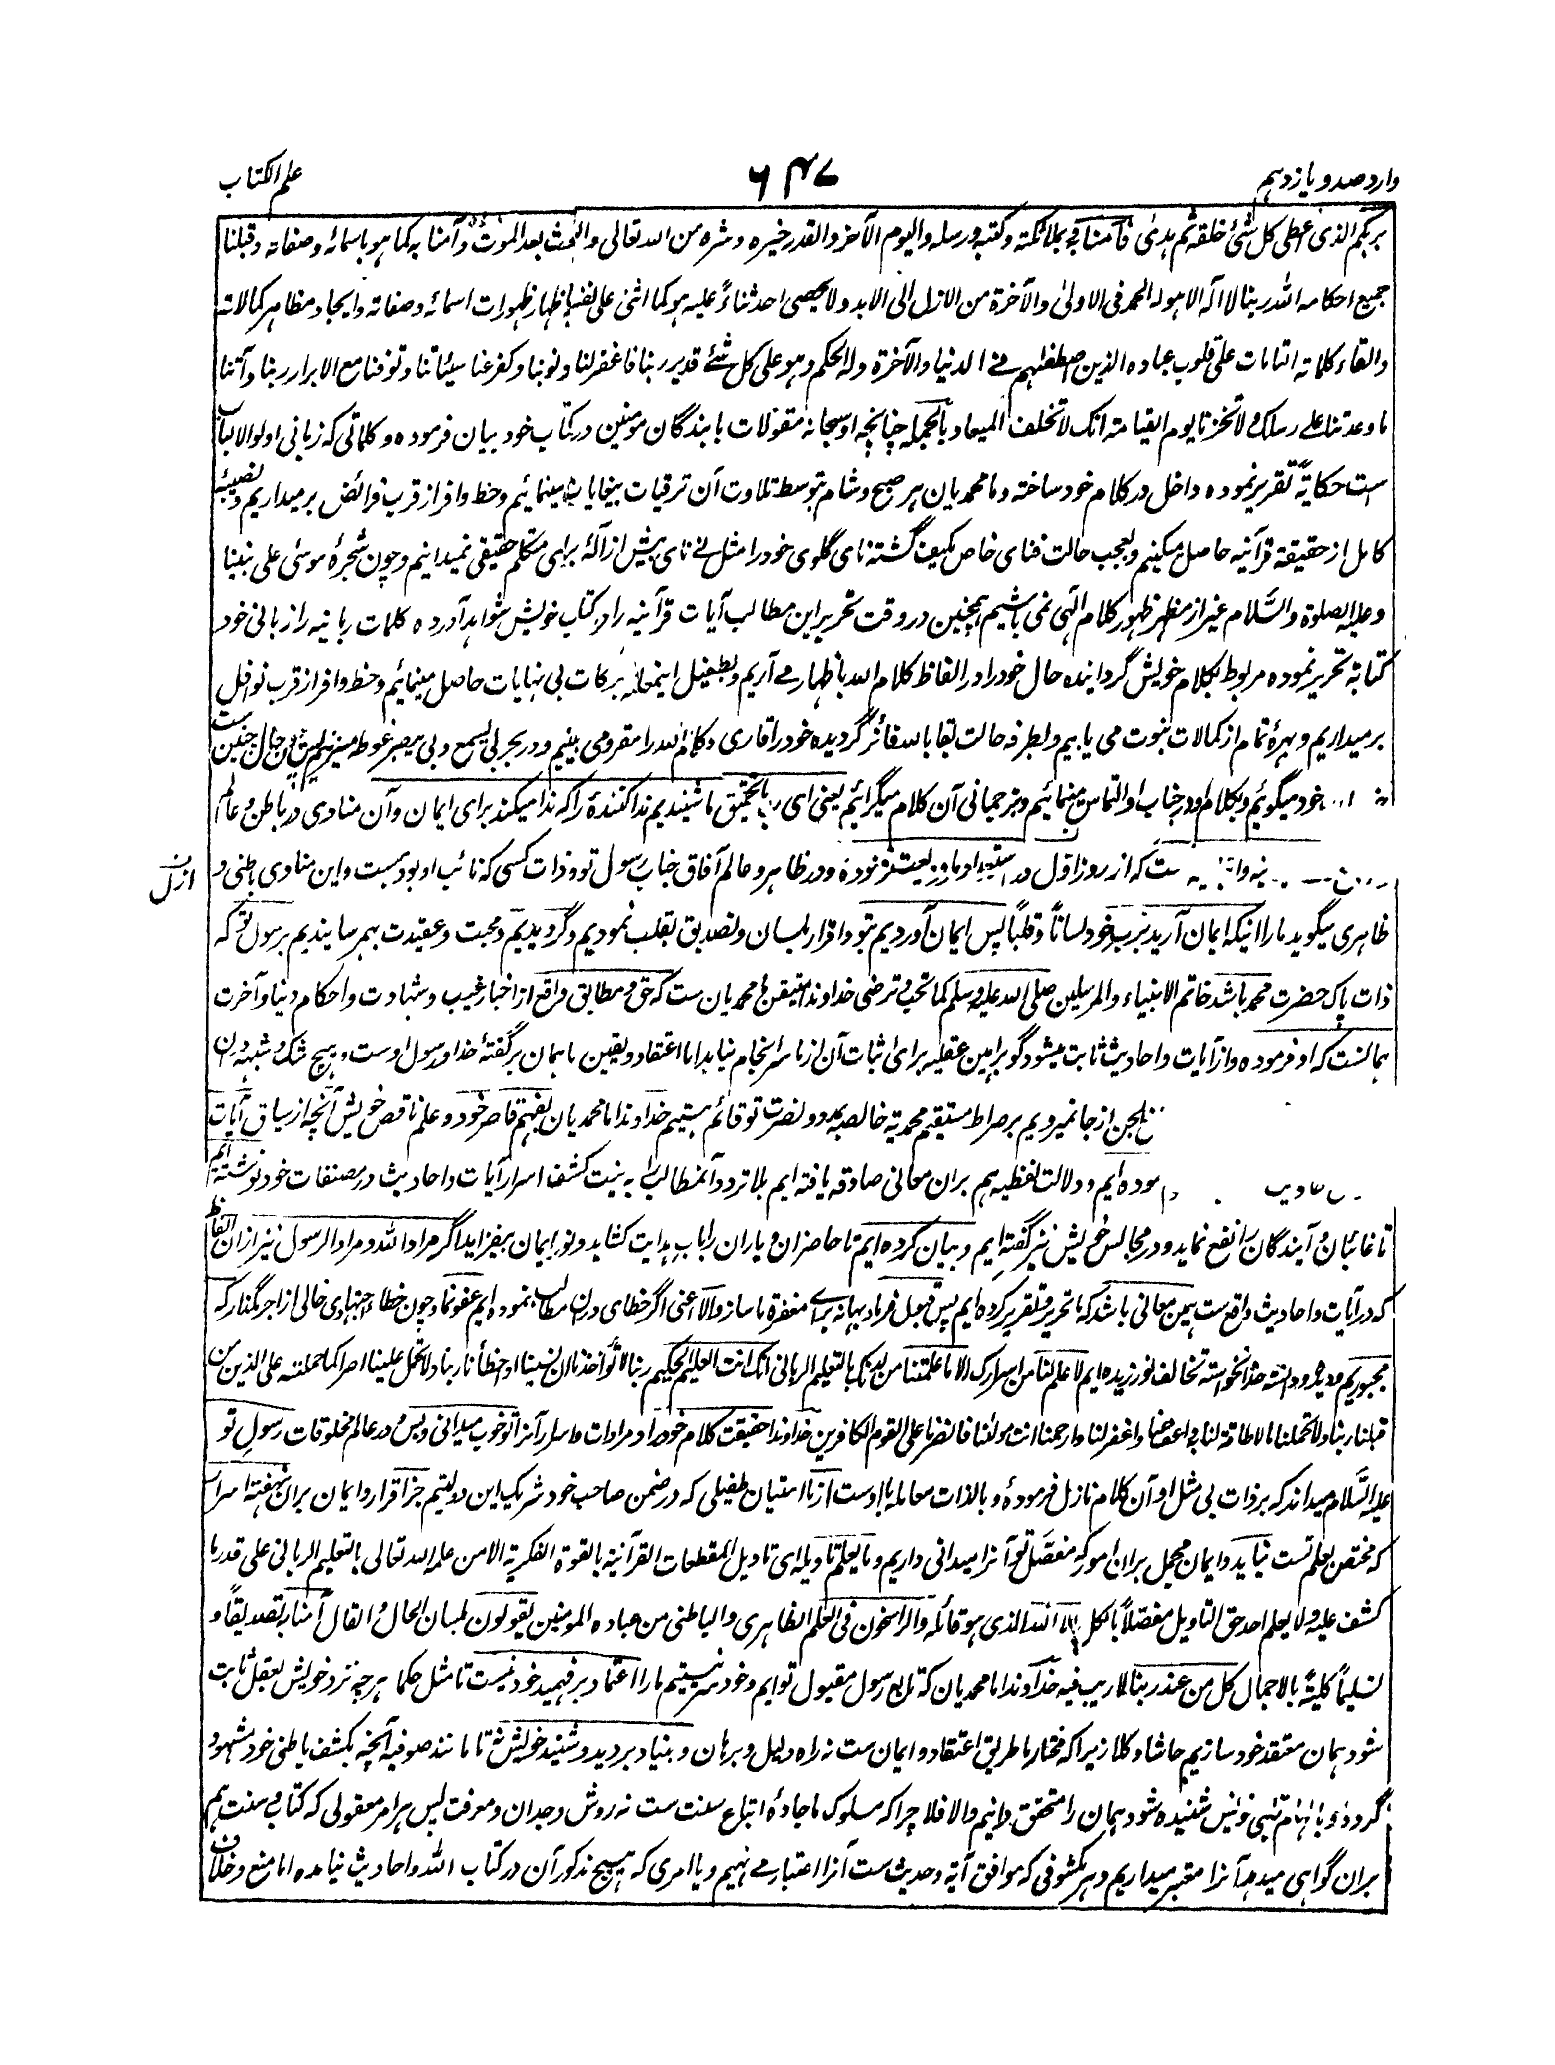 وارد صد و یازدهم
۶۴۷
علم الکتاب
بربکم الذی اعطی کل شئ خلقه ثم هدی فآمنا به بملائکته وکتبه ورسله والیوم الآخر والقدر خیره وشره من الله تعالی والبعث بعد الموت وآمنا به کما هو باسمائه وصفاته وقبلنا
جمیع احکامه الله ربنا لا اله الا هو له الحمد فی الاولی والآخرة من الازل الی الابد ولا یحصی احد ثناءً علیه هو کما اثنی علی نفسه باظهار ظهورات اسمائه وصفاته وایجاد مظاهر کمالاته
والقاء کلماته التامات علی قلوب عباده الذین اصطفاهم فی الدنیا والآخرة وله الحکم وهو علی کل شئ قدیر ربنا فاغفر لنا ذنوبنا وکفر عنا سیئاتنا وتوفنا مع الابرار ربنا وآتنا
ما وعدتنا علی رسلک ولا تخزنا یوم القیامة انک لا تخلف المیعاد بالجمله چنانچه او سبحانه مقولات بابندگان مومنین در کتاب خود بیان فرموده و کلماتی که زبانی اولو الالباب
ست حکایةً تقریر نموده داخل در کلام خود ساخته و ما محمدیان هر صبح و شام بتوسط تلاوت آن ترقیات بیغایات مینمائیم و حظ وافر از قرب فرائض برمیداریم و نصیبهٔ
کامل از حقیقة قرآنیه حاصل میکنیم و بعجب حالت فنای خاص مکیف گشته نای گلوی خود را مثل نی نای بیش از آلهٔ برای متکلم حقیقی نمیدانیم و چون شجرهٔ موسی علی نبینا
وعلیه الصلوة والسلام غیر از مظهر ظهور کلام الهی نمی باشیم همچنین در وقت تحریر این مطالب آیات قرآنیه را در کتاب خویش شواهد آورده کلمات ربانیه را زبانی خود
کتابة تحریر نموده مربوط بکلام خویش گردانیده حال خود را در الفاظ کلام الله باظهار می آریم و بطفیل اینمعنی برکات بی نهایات حاصل مینمائیم و حظ وافر از قرب نوافل
برمیداریم و بهرهٔ تمام از کمالات نبوت می یابیم و بطرفه حالت بقا بالله فائز گردیده خود را قاری و کلام الله را مقرو می بینیم و در بحر بی یسمع و بی یبصر غوطه میزنیم پس درین حال چنین ست
خود میگوئیم و بکلام او در جناب او التماس مینمائیم و بترجمانی آن کلام میگرائیم یعنی ای رب ما بتحقیق ما شنیدیم ندا کنندهٔ را که ندا میکند برای ایمان و آن منادی در باطن و عالم
ست که از روز اول در استعداد ما ودیعت فرموده و در ظاهر و عالم آفاق جناب رسول تو و ذات کسی که نائب او بوده ست و این منادی باطنی و
ظاهری میگوید ما را اینکه ایمان آرید برب خود لساناً و قلباً پس ایمان آوردیم بتو و اقرار بلسان و تصدیق بقلب نمودیم و گرویدیم و محبت و عقیدت بهم رسانیدیم برسول تو که
ذات پاک حضرت محمد باشد خاتم الانبیاء والمرسلین صلی الله علیه وسلم کما تحب و ترضی خداوندا متیقن ما محمدیان ست که حق و مطابق واقع از اخبار غیب و شهادت و احکام دنیا و آخرت
همانست که او فرموده و از آیات و احادیث ثابت میشود گو براهین عقلیه برای اثبات آن از ما سرانجام نیابد اما اعتقاد و یقین ما همان بر گفتهٔ خدا و رسول اوست و هیچ شک و شبهه در آن
از جا نمیرویم بر صراط مستقیم محمدیه خالصه بمدد و نصرت تو قائم هستیم خداوندا ما محمدیان بفهم قاصر خود و علم ناقص خویش آنچه از سیاق آیات
وده ایم و دلالت لفظیه هم بران معانی صادقه یافته ایم بلا تردد آنمطالب را به نیت کشف اسرار آیات و احادیث در مصنفات خود نوشته ایم
تا غائبان و آیندگان را نفع نماید و در مجالس خویش نیز گفته ایم و بیان کرده ایم تا حاضران و یاران را باب هدایت کشاید و نور ایمان بیفزاید اگر مراد الله و مراد الرسول نیز ازان الفاظ
که در آیات و احادیث واقع ست همین معانی باشد که ما تحریر و تقریر کرده ایم پس قبول فرما و بهانه برای مغفرة ما ساز و الا اعنی اگر خطای دران مطالب نموده ایم عفو نما و چون خطاء اجتهادی خالی از اجر مگذار که
مجبوریم و دیده و دانسته خدا نخواسته تخالف نورزیده ایم لا علم لنا من اسرارک الا ما علمتنا من لدنک بالتعلیم الربانی انک انت العلیم الحکیم ربنا لا تؤاخذنا ان نسینا او اخطأنا ربنا ولا تحمل علینا اصرا کما حملته علی الذین من
قبلنا ربنا ولا تحملنا ما لا طاقة لنا به واعف عنا واغفر لنا وارحمنا انت مولانا فانصرنا علی القوم الکافرین خداوندا حقیقت کلام خود را و مرادات و اسرار آنرا تو خوب میدانی و بس و در عالم مخلوقات رسول تو
علیه السلام میداند که بر ذات بی مثل او آن کلام نازل فرمودهٔ و بالذات معامله با اوست از ما امتیان طفیلی که در ضمن صاحب خود شریک این دولتیم جز اقرار و ایمان بران نهفته اسرار
که مختص بعلم تست نیاید و ایمان مجمل بران امور که مفصل تو آنرا میدانی داریم وما یعلم تاویله ای تاویل المقطعات القرآنیة بالقوة الفکریة الا من علمه الله تعالی بالتعلیم الربانی علی قدر ما
کشف علیه ولا یعلم احد حق التاویل مفصلاً بالکل الا الله الذی هو قائله والراسخون فی العلم الظاهری والباطنی من عباده المومنین یقولون لبسان الحال والقال آمنا به تصدیقاً و
تسلیماً کلیةً بالاجمال کل من عند ربنا لا ریب فیه خداوندا ما محمدیان که تابع رسول مقبول توایم و خودسر نیستیم ما را اعتماد بر فهمید خود نیست تا مثل حکما هرچه نزد خویش بعقل ثابت
شود همان معتقد خود سازیم حاشا و کلا زیرا که مختار ما طریق اعتقاد و ایمان ست نه راه دلیل و برهان و بنیاد بر دید و شنید خویش نه تا مانند صوفیه آنچه بکشف باطنی خود مشهود
گردد و با الهام قلبی خویش شنیده شود همان را متحقق دانیم و الا فلا چراکه مسلوک ما جادهٔ اتباع سنت ست نه روش وجدان و معرفت پس هر امر معقولی که کتاب و سنت هم
بران گواهی میدهد آنرا معتبر میداریم و هر مکشوفی که موافق آیة و حدیث ست آنرا اعتبار می نهیم و یا امری که هیچ مذکور آن در کتاب الله و احادیث نیامده اما منع و خلاف